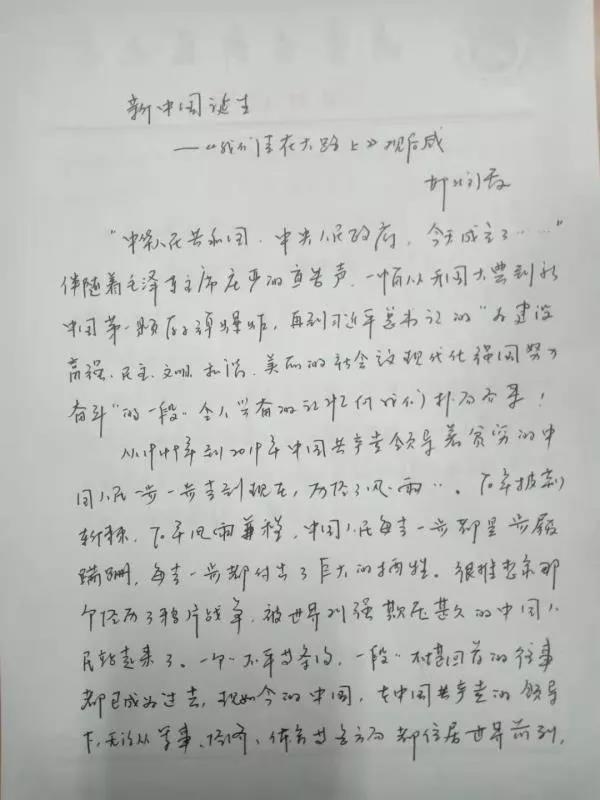 新中国诞生
——《我们走在大路上》观后感
"中华人民共和国.中央人民政府,今天成立了……"
伴随着毛泽东主席庄严的宣告声,一幅从开国大典到新
中国第一颗原子弹爆炸,再到习近平总书记的"为建设
富强.民主.文明.和谐.美丽的社会主义现代化强国努力
奋斗"的一段令人兴奋的记忆付诸们扑面而来!
从1949年到2019年中国共产党领导着贫穷的中
国人民一步一步走到现在,历经了风雨…。70年披荆
斩棘,70年风雨兼程,中国人民每走一步都是步履
蹒跚,每走一步都付出了巨大的牺牲。很难想象那
个经历了鸦片战争,被世界列强欺压甚久的中国人
民站起来了。一个个不平等条约,一段段不堪回首的往事
都已成为过去,现如今的中国,在中国共产党的领导
下,无论从军事、经济、体育等各方面都位居世界前列,